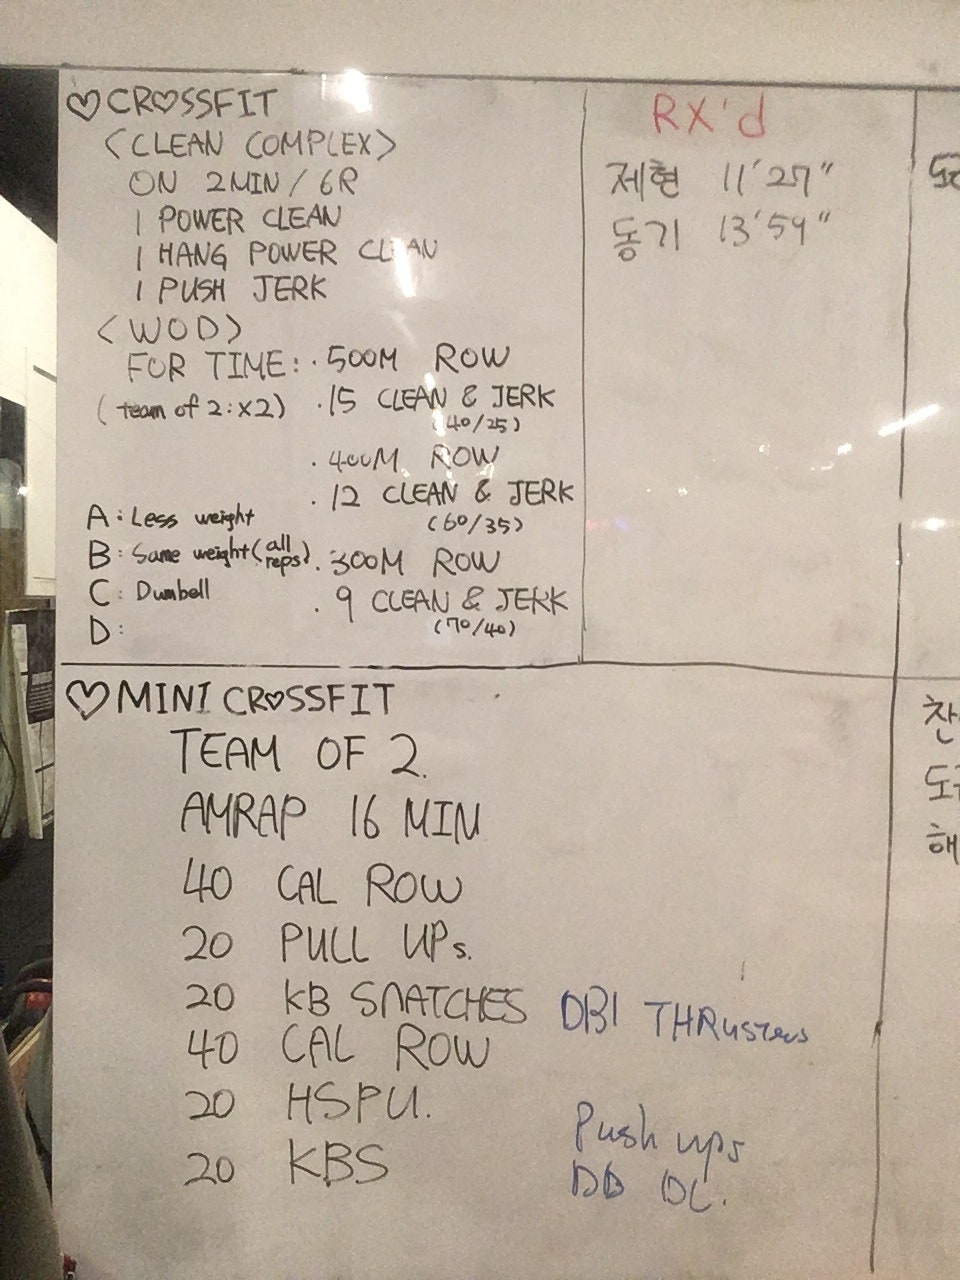 ♡ CR♡SSFIT
<CLEAN COMPLEX>
ON 2MIN / 6R
1 POWER CLEAN
1 HANG POWER CLEAN
1 PUSH JERK
<WOD>
FOR TIME: · 500M ROW
(team of 2: x2) · 15 CLEAN & JERK
(40/25)
· 400M ROW
· 12 CLEAN & JERK
(60/35)
A: Less weight
B: Same weight (all reps)
C: Dumbell
D:
· 300M ROW
· 9 CLEAN & JERK
(70/40)
RX'd
제현 11'27"
동기 13'59"
♡ MINI CR♡SSFIT
TEAM OF 2.
AMRAP 16 MIN
40 CAL ROW
20 PULL UPs.
20 KB SNATCHES DB THRUSTERS
40 CAL ROW
20 HSPU. Push ups
20 KBS
찬
해